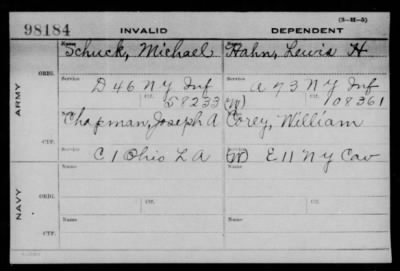 (3-M-5)
98184 INVALID DEPENDENT
ARMY
ORIG.
Name
Schuck, Michael Hahn, Lewis H
Service Service
D 46 N Y Inf A 93 N Y Inf
Ctf. 58233 (W) Ctf. 08361
CTF.
Chapman, Joseph A Corey, William
Service Service
C 1 Ohio L A (W) E 11 N Y Cav
NAVY
ORIG.
Name Name
Service Ctf. Service Ctf.
CTF.
Name Name